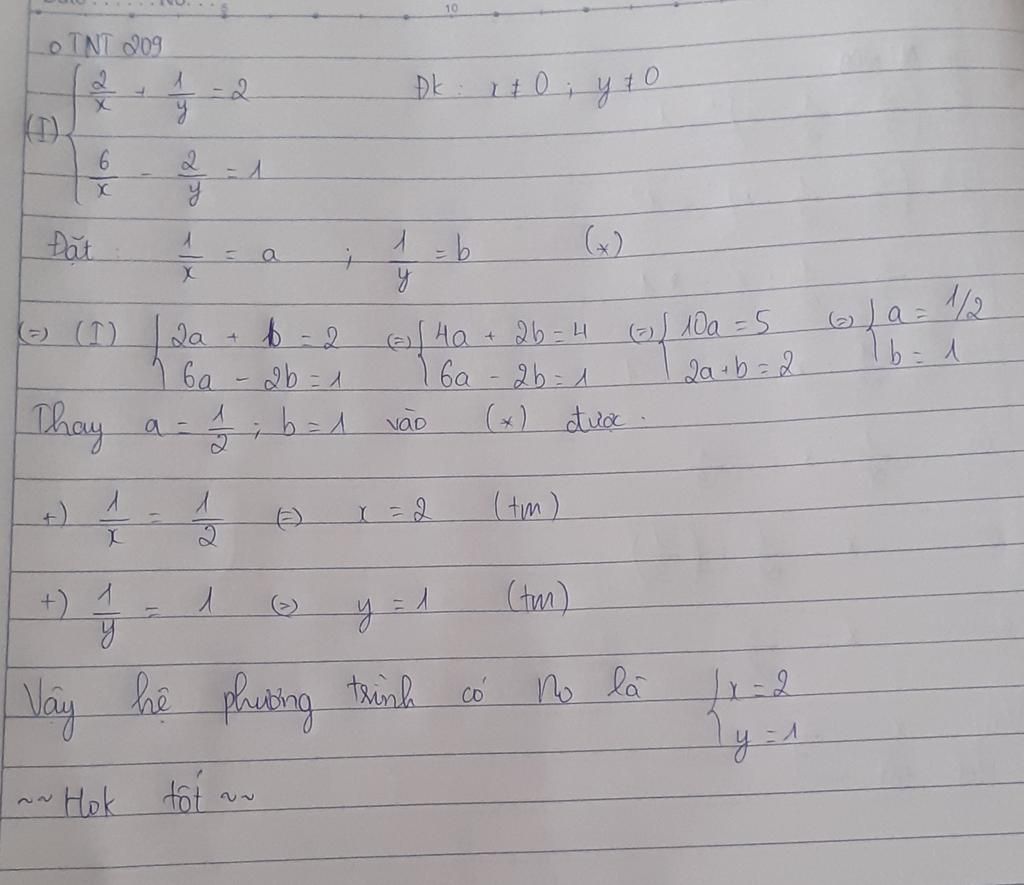 10
o TNT 209
(I) { 2/x + 1/y = 2 Đk : x ≠ 0 ; y ≠ 0
6/x - 2/y = 1
Đặt : 1/x = a ; 1/y = b (*)
(=) (I) { 2a + b = 2 (=) { 4a + 2b = 4 (=) { 10a = 5 (=) { a = 1/2
6a - 2b = 1 6a - 2b = 1 2a+b = 2 b = 1
Thay a = 1/2 ; b = 1 vào (*) được :
+) 1/x = 1/2 (=) x = 2 (tm)
+) 1/y = 1 (=) y = 1 (tm)
Vậy hệ phương trình có no là { x = 2
y = 1
~~ Hok tốt ~~